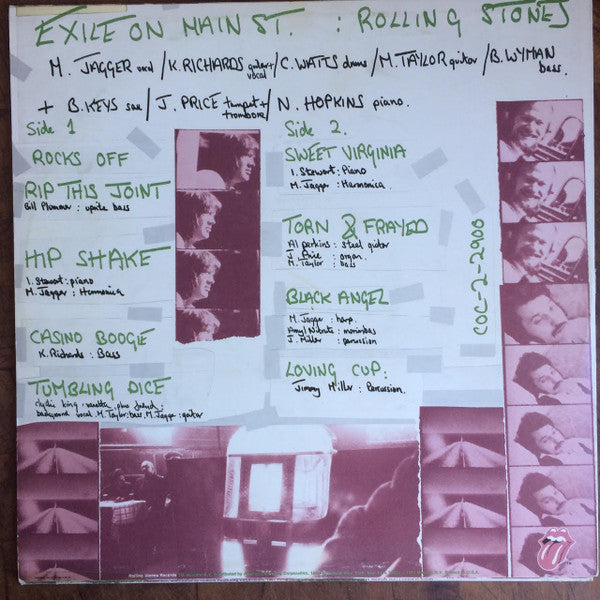 EXILE ON MAIN ST. : ROLLING STONES
M. JAGGER vocal / K. RICHARDS guitar + vocal / C. WATTS drums / M. TAYLOR guitar / B. WYMAN bass.
+ B. KEYS sax / J. PRICE trumpet + trombone / N. HOPKINS piano.
Side 1
ROCKS OFF
RIP THIS JOINT
Bill Plummer : uprite bass
HIP SHAKE
I. Stewart : piano
M. Jagger : Harmonica
CASINO BOOGIE
K. Richards : Bass
TUMBLING DICE
clydie king : vanetta, plus friend :
background vocal. M. Taylor : bass. M. Jagger : guitar
Side 2.
SWEET VIRGINIA
I. Stewart : Piano
M. Jagger : Harmonica.
TORN & FRAYED
Al perkins : steel guitar
J. Price : organ.
M. Taylor : bass
BLACK ANGEL
M. Jagger : harp.
Amyl Nitrate : marimbas
J. Miller : percussion
LOVING CUP :
Jimmy Miller : Percussion.
COC-2-2900
Rolling Stones Records